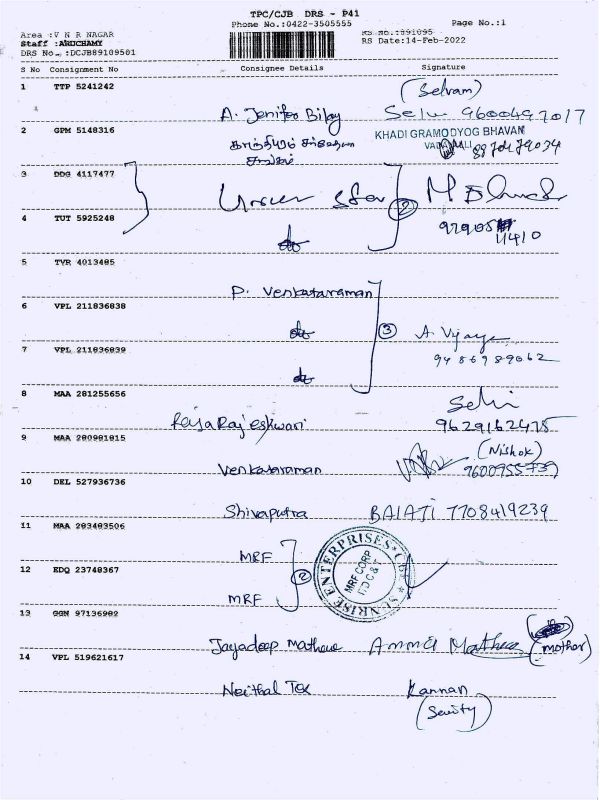 TPC/CJB DRS - P41
Phone No.:0422-3505555
Page No.:1
Area :V N R NAGAR
Staff :ARUCHAMY
DRS No.:DCJB89109501
RS No.:891095
RS Date:14-Feb-2022
S No Consignment No Consignee Details Signature
1 TTP 5241242
(Selvam)
A. Jenifer
9600497017
2 GPM 5148316
KHADI GRAMODYOG BHAVAN
VADAVALLI
3 DDG 4117477
Star
2
4 TUT 5925248
do
5 TVR 4013485
P. Venkataraman
6 VPL 211836838
do
3
A. Vijaya
7 VPL 211836839
do
9486989062
8 MAA 281255656
Selvi
RajaRajeshwari
9629162475
9 MAA 280981815
(Nishok)
Venkataraman
9600955739
10 DEL 527936736
Shivaputra
BALAJI 7708419239
11 MAA 283483506
MRF
2
SUNRISE ENTERPRISES * CBE
MRF CORP
12 EDQ 23748367
MRF
13 GGN 97136982
Jayadeep Mathew
Amma Mathew
(mother)
14 VPL 519621617
Neithal Tex
Kannan